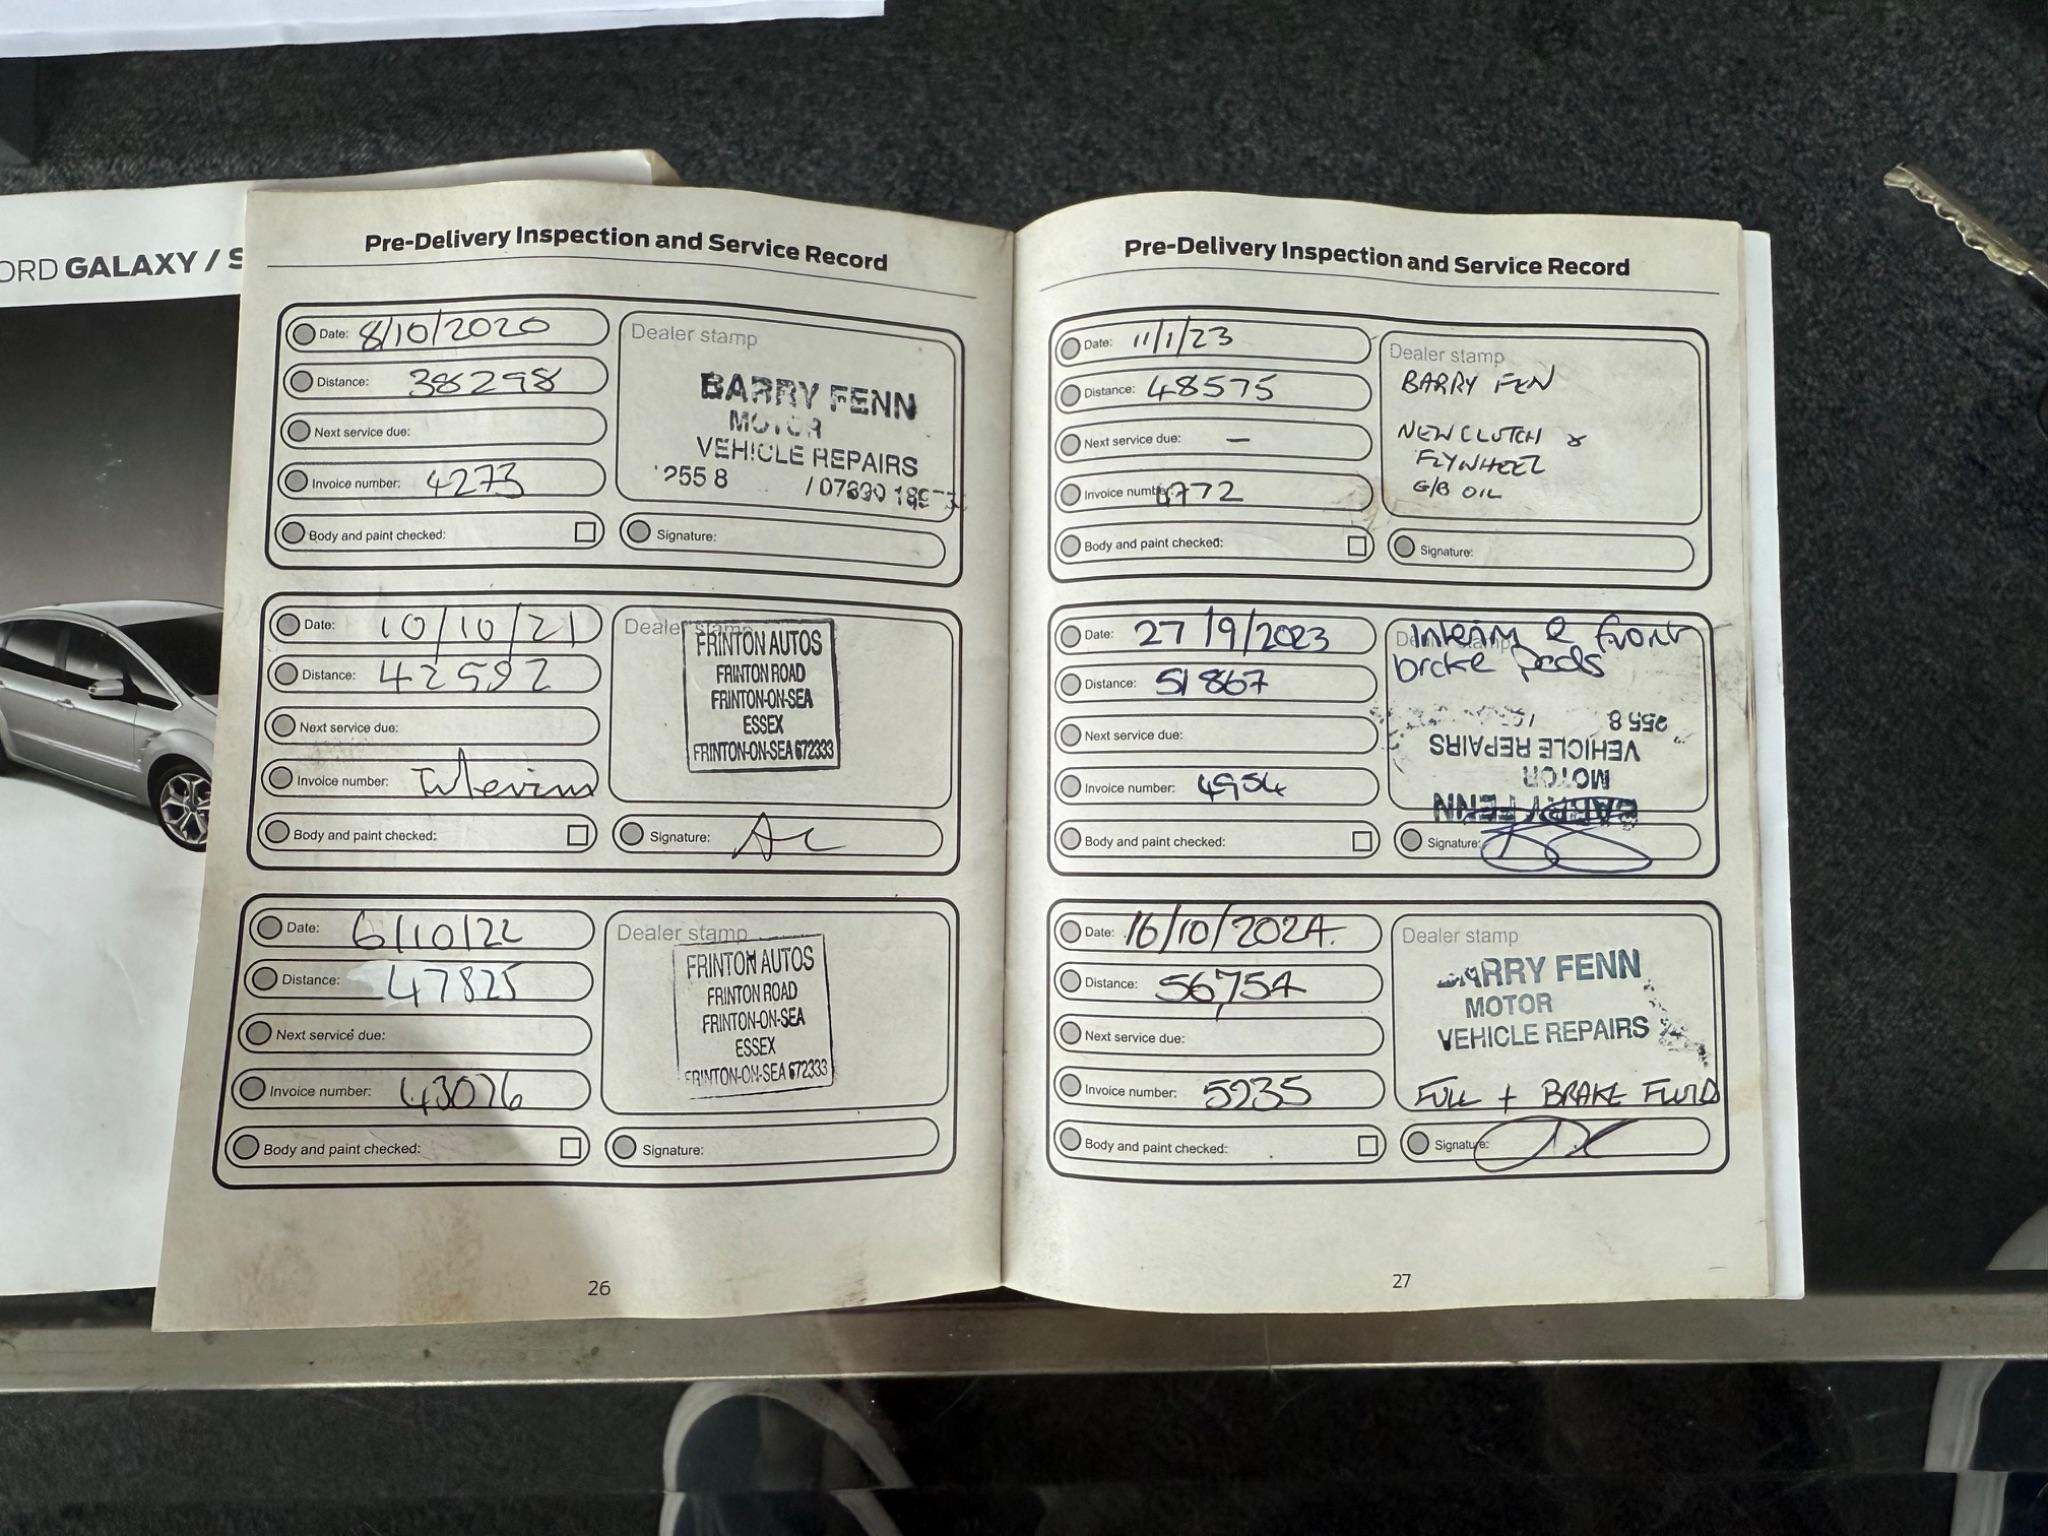 ORD GALAXY / S
Pre-Delivery Inspection and Service Record
Date: 8/10/2020
Distance: 38298
Next service due:
Invoice number: 4273
Body and paint checked:
Dealer stamp
BARRY FENN
MOTOR
VEHICLE REPAIRS
255 8 / 07890
Signature:
Date: 10/10/21
Distance: 42592
Next service due:
Invoice number: Interim
Body and paint checked:
Dealer stamp
FRINTON AUTOS
FRINTON ROAD
FRINTON-ON-SEA
ESSEX
FRINTON-ON-SEA 672333
Signature:
Date: 6/10/22
Distance: 47825
Next service due:
Invoice number: 43076
Body and paint checked:
Dealer stamp
FRINTON AUTOS
FRINTON ROAD
FRINTON-ON-SEA
ESSEX
FRINTON-ON-SEA 672333
Signature:
26
Pre-Delivery Inspection and Service Record
Date: 11/1/23
Distance: 48575
Next service due: –
Invoice number: 4772
Body and paint checked:
Dealer stamp
BARRY FEN
NEW CLUTCH &
FLYWHEEL
G/B OIL
Signature:
Date: 27/9/2023
Distance: 51867
Next service due:
Invoice number: 4954
Body and paint checked:
Dealer stamp
Interim & front
brake pads
255 8
VEHICLE REPAIRS
MOTOR
BARRY FENN
Signature:
Date: 16/10/2024.
Distance: 56754
Next service due:
Invoice number: 5235
Body and paint checked:
Dealer stamp
BARRY FENN
MOTOR
VEHICLE REPAIRS
FULL + BRAKE FLUID
Signature:
27